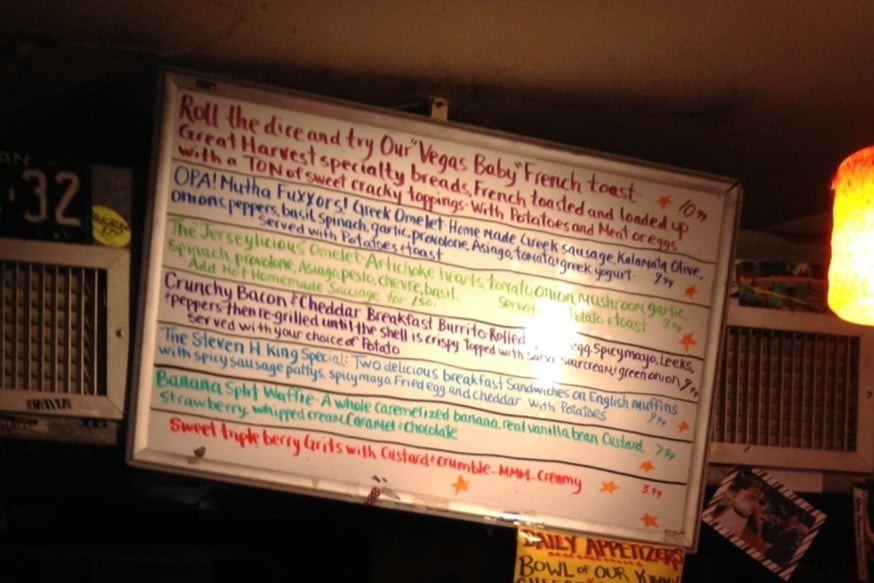 Roll the dice and try Our "Vegas Baby" French toast-
Great Harvest specialty breads, French toasted and loaded up
with a TON of sweet cracky toppings-With Potatoes and Meat or eggs
10.99
OPA! Mutha Fuxxors! Greek Omelet-Home made Greek sausage, Kalamata Olive,
onions, peppers, basil, spinach, garlic, provolone, Asiago, tomato, greek yogurt-
Served with Potatoes + toast
9.99
The Jerseylicious Omelet-Artichoke hearts, tomato, Onion, Mushroom, garlic,
Spinach, provolone, Asiago, pesto, chevre, basil. Served Potato + toast
Add Hot Homemade Sausage for 1.50.
9.99
Crunchy Bacon + Cheddar Breakfast Burrito-Rolled egg, Spicy mayo, Leeks,
+ peppers-then re-grilled until the shell is crispy topped with sour cream/green onion
Served with your choice of Potato
9.99
The Steven H. King Special: Two delicious breakfast Sandwiches on English Muffins
with spicy sausage pattys, spicy mayo Fried egg and cheddar-With Potatoes
9.99
Banana Split Waffle-A whole caremelized banana, real vanilla bean Custard,
Strawberry, whipped cream, Caramel + Chocolate
7.99
Sweet triple berry Grits with Custard + crumble-MMM Creamy
3.99
DAILY APPETIZERS
BOWL OF OUR
32